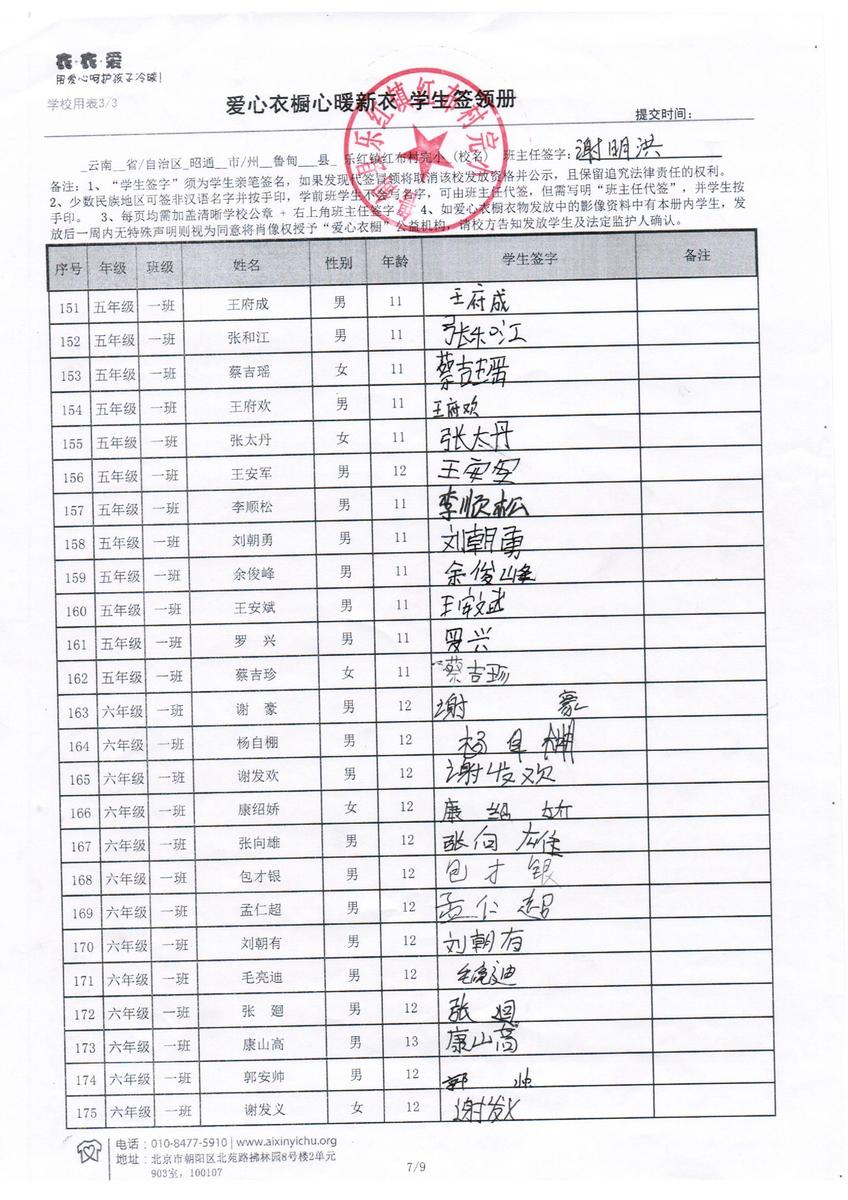 衣·衣·爱
用爱心呵护孩子冷暖!
学校用表3/3
爱心衣橱心暖新衣 学生签领册
提交时间:
云南__省/自治区_昭通__市/州__鲁甸___县_ 乐红镇红布村完小_(校名) 班主任签字: 谢明洪
备注: 1、“学生签字”须为学生亲笔签名, 如果发现代签冒领将取消该校发放资格并公示, 且保留追究法律责任的权利。
2、少数民族地区可签非汉语名字并按手印, 学前班学生不会写名字, 可由班主任代签, 但需写明“班主任代签”, 并学生按
手印。 3、每页均需加盖清晰学校公章 + 右上角班主任签字 4、如爱心衣橱衣物发放中的影像资料中有本册内学生, 发
放后一周内无特殊声明则视为同意将肖像权授予“爱心衣橱”公益机构, 请校方告知发放学生及法定监护人确认。
序号 年级 班级 姓名 性别 年龄 学生签字 备注
151 五年级 一班 王府成 男 11 王府成
152 五年级 一班 张和江 男 11 张和江
153 五年级 一班 蔡吉瑶 女 11 蔡吉瑶
154 五年级 一班 王府欢 男 11 王府欢
155 五年级 一班 张太丹 女 11 张太丹
156 五年级 一班 王安军 男 12 王安军
157 五年级 一班 李顺松 男 11 李顺松
158 五年级 一班 刘朝勇 男 11 刘朝勇
159 五年级 一班 余俊峰 男 11 余俊峰
160 五年级 一班 王安斌 男 11 王安斌
161 五年级 一班 罗 兴 男 11 罗兴
162 五年级 一班 蔡吉珍 女 11 蔡吉珍
163 六年级 一班 谢 豪 男 12 谢 豪
164 六年级 一班 杨自棚 男 12 杨自棚
165 六年级 一班 谢发欢 男 12 谢发欢
166 六年级 一班 康绍娇 女 12 康绍娇
167 六年级 一班 张向雄 男 12 张向雄
168 六年级 一班 包才银 男 12 包才银
169 六年级 一班 孟仁超 男 12 孟仁超
170 六年级 一班 刘朝有 男 12 刘朝有
171 六年级 一班 毛亮迪 男 12 毛亮迪
172 六年级 一班 张 廻 男 12 张 廻
173 六年级 一班 康山高 男 13 康山高
174 六年级 一班 郭安帅 男 12 郭 帅
175 六年级 一班 谢发义 女 12 谢发义
电话: 010-8477-5910 | www.aixinyichu.org
地址: 北京市朝阳区北苑路拂林园8号楼2单元
903室, 100107
7/9